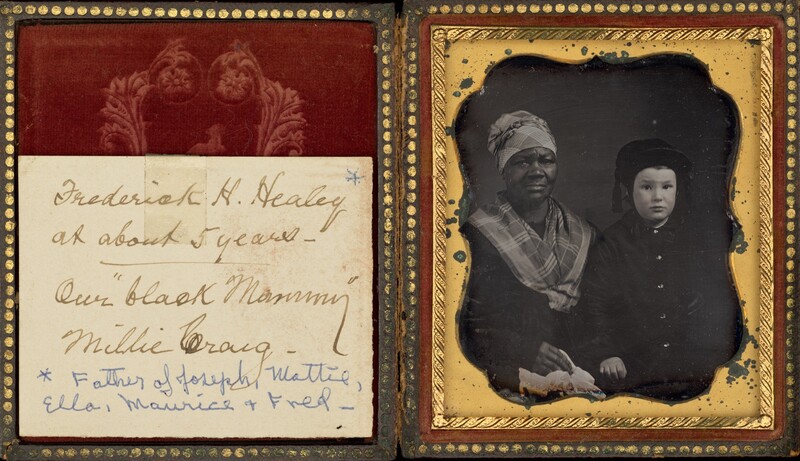 Frederick H. Healey *
at about 5 years -
Our "black Mammy"
Millie Craig -
* Father of Joseph, Mattie,
Ella, Maurice & Fred -